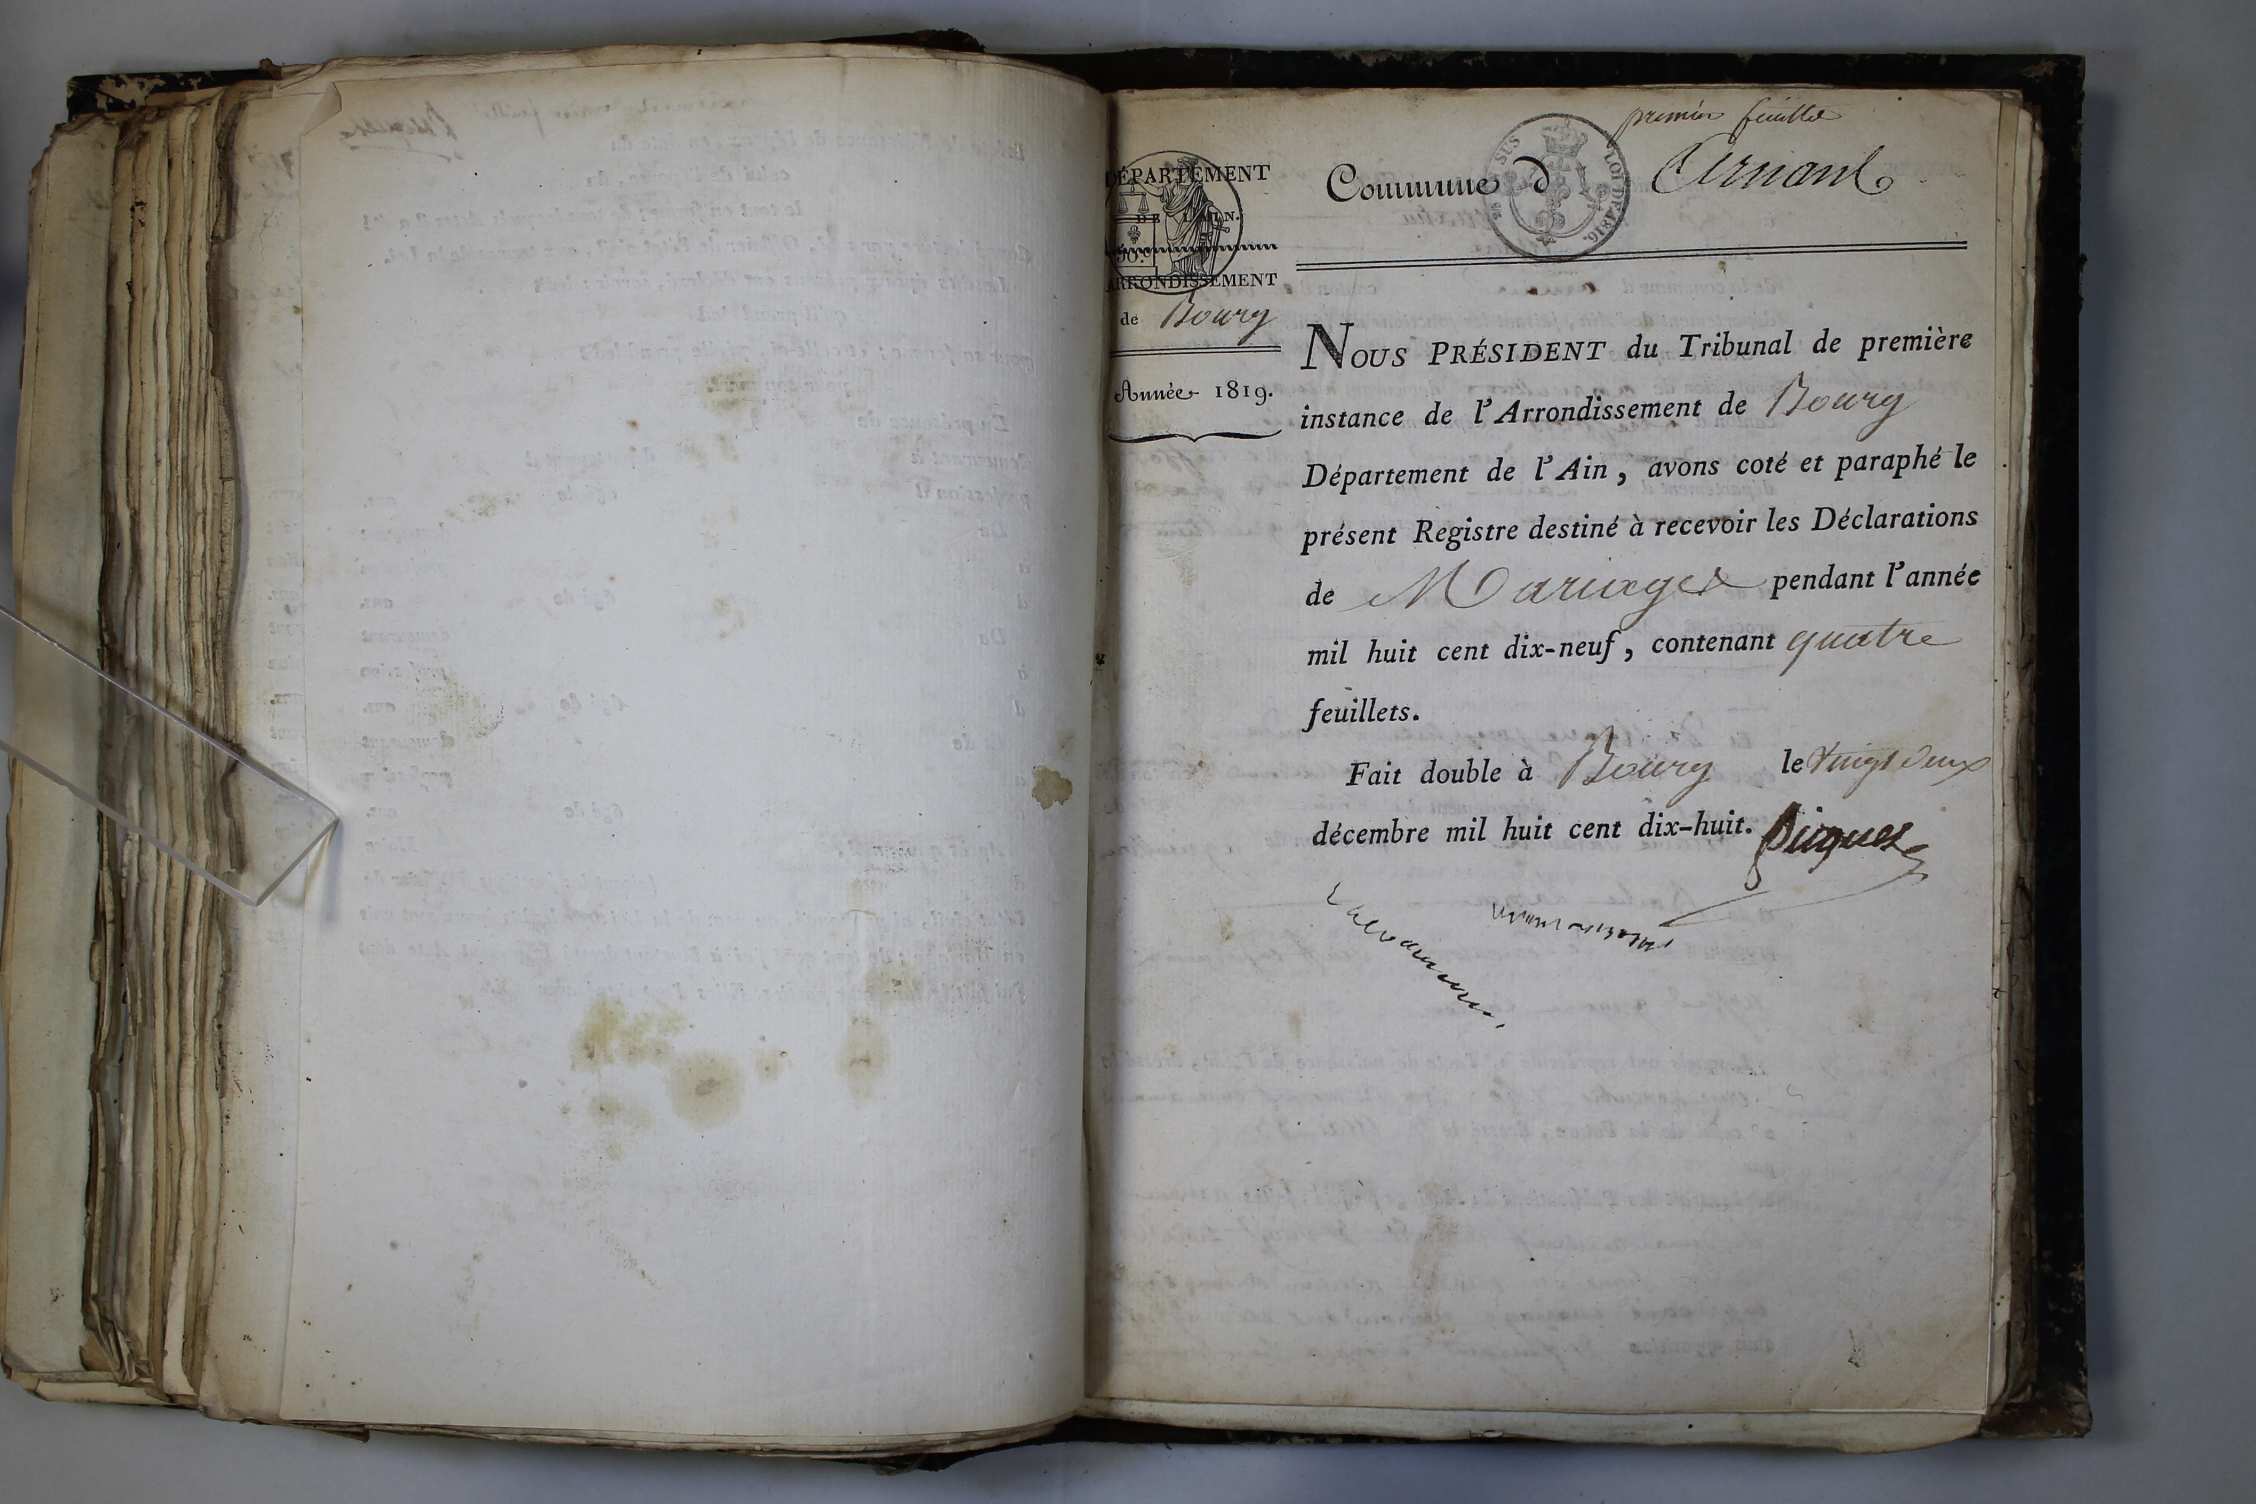 premier feuillet
Commune d'Arnans
DÉPARTEMENT
DE L'AIN.
ARRONDISSEMENT
de Bourg
Année 1819.
SUS
LOI DE 1816.
NOUS PRÉSIDENT du Tribunal de première
instance de l'Arrondissement de Bourg
Département de l'Ain, avons coté et paraphé le
présent Registre destiné à recevoir les Déclarations
de Mariages pendant l'année
mil huit cent dix-neuf, contenant quatre
feuillets.
Fait double à Bourg le vingt deux
décembre mil huit cent dix-huit.